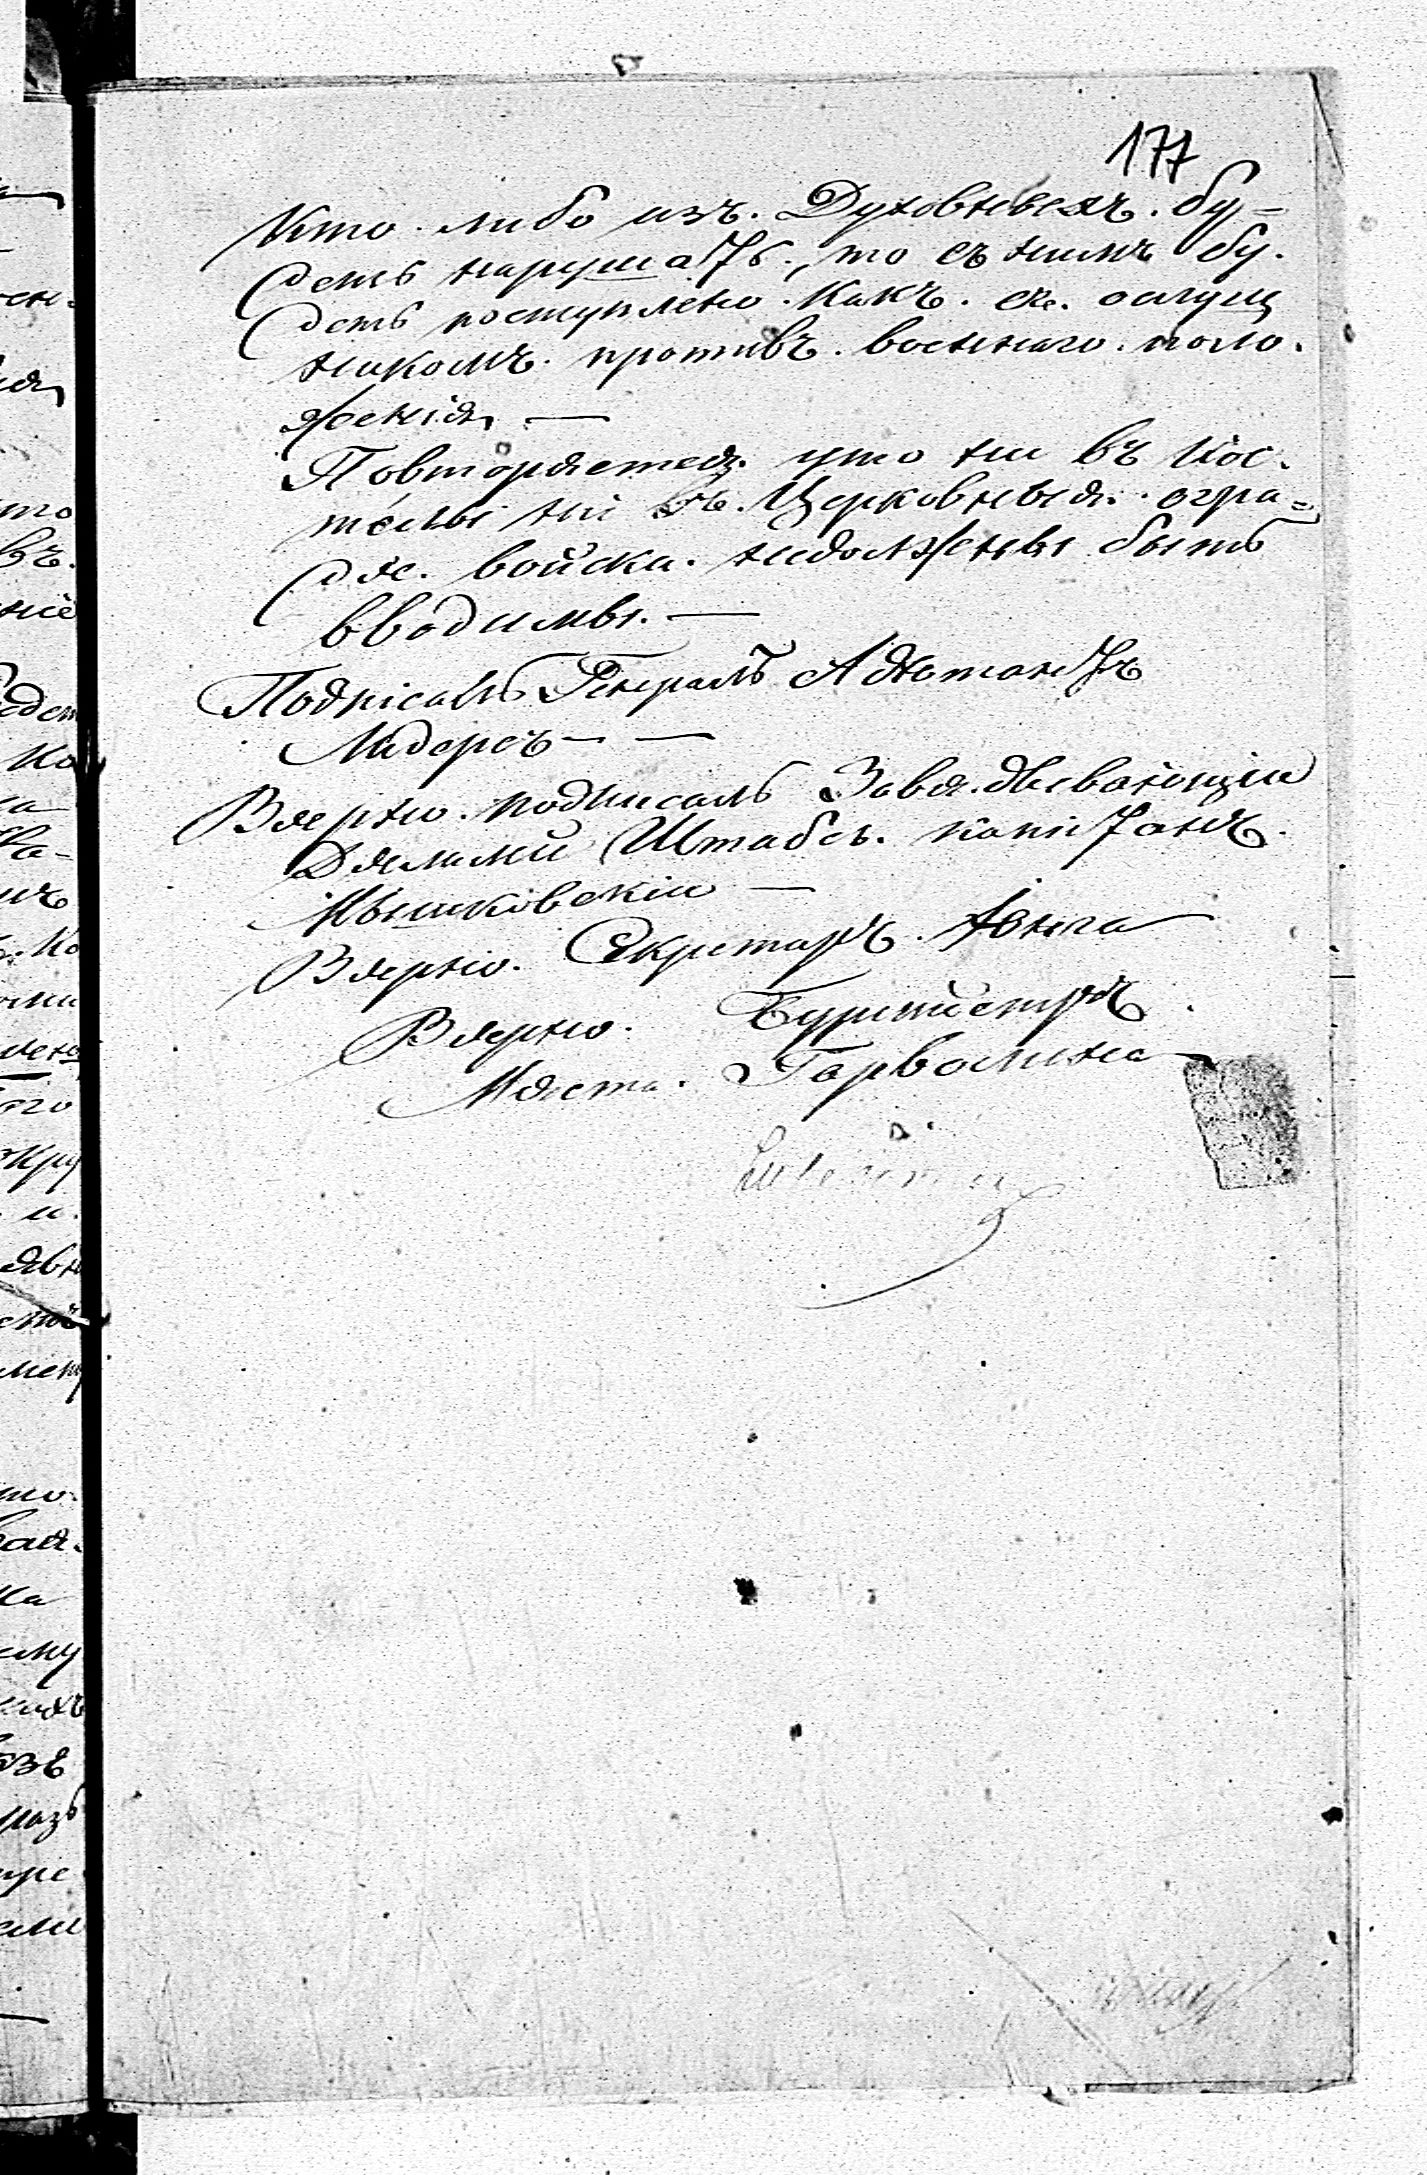 177
Кто либо изъ. Духовныхъ. бу=
детъ нарушать., то съ нимъ бу.
детъ поступлено. Какъ. съ. ослуш
никомъ. противъ. военнаго. поло.
женія. —
Повторяется. что ни въ Кос.
тёлы ни въ. Церковныя. огра=
дѣ. войска. недолжны быть
вводимы. —
Подпісалъ Генералъ Адютантъ
Лидерсъ — —
Вѣрно. подписалъ Завѣдывающіи
Дѣлами Штабсъ. капітанъ.
Мышковскіи —
Вѣрно. Секретарь.
Вѣрно. Бурмистръ.
Мѣста. Гарволина